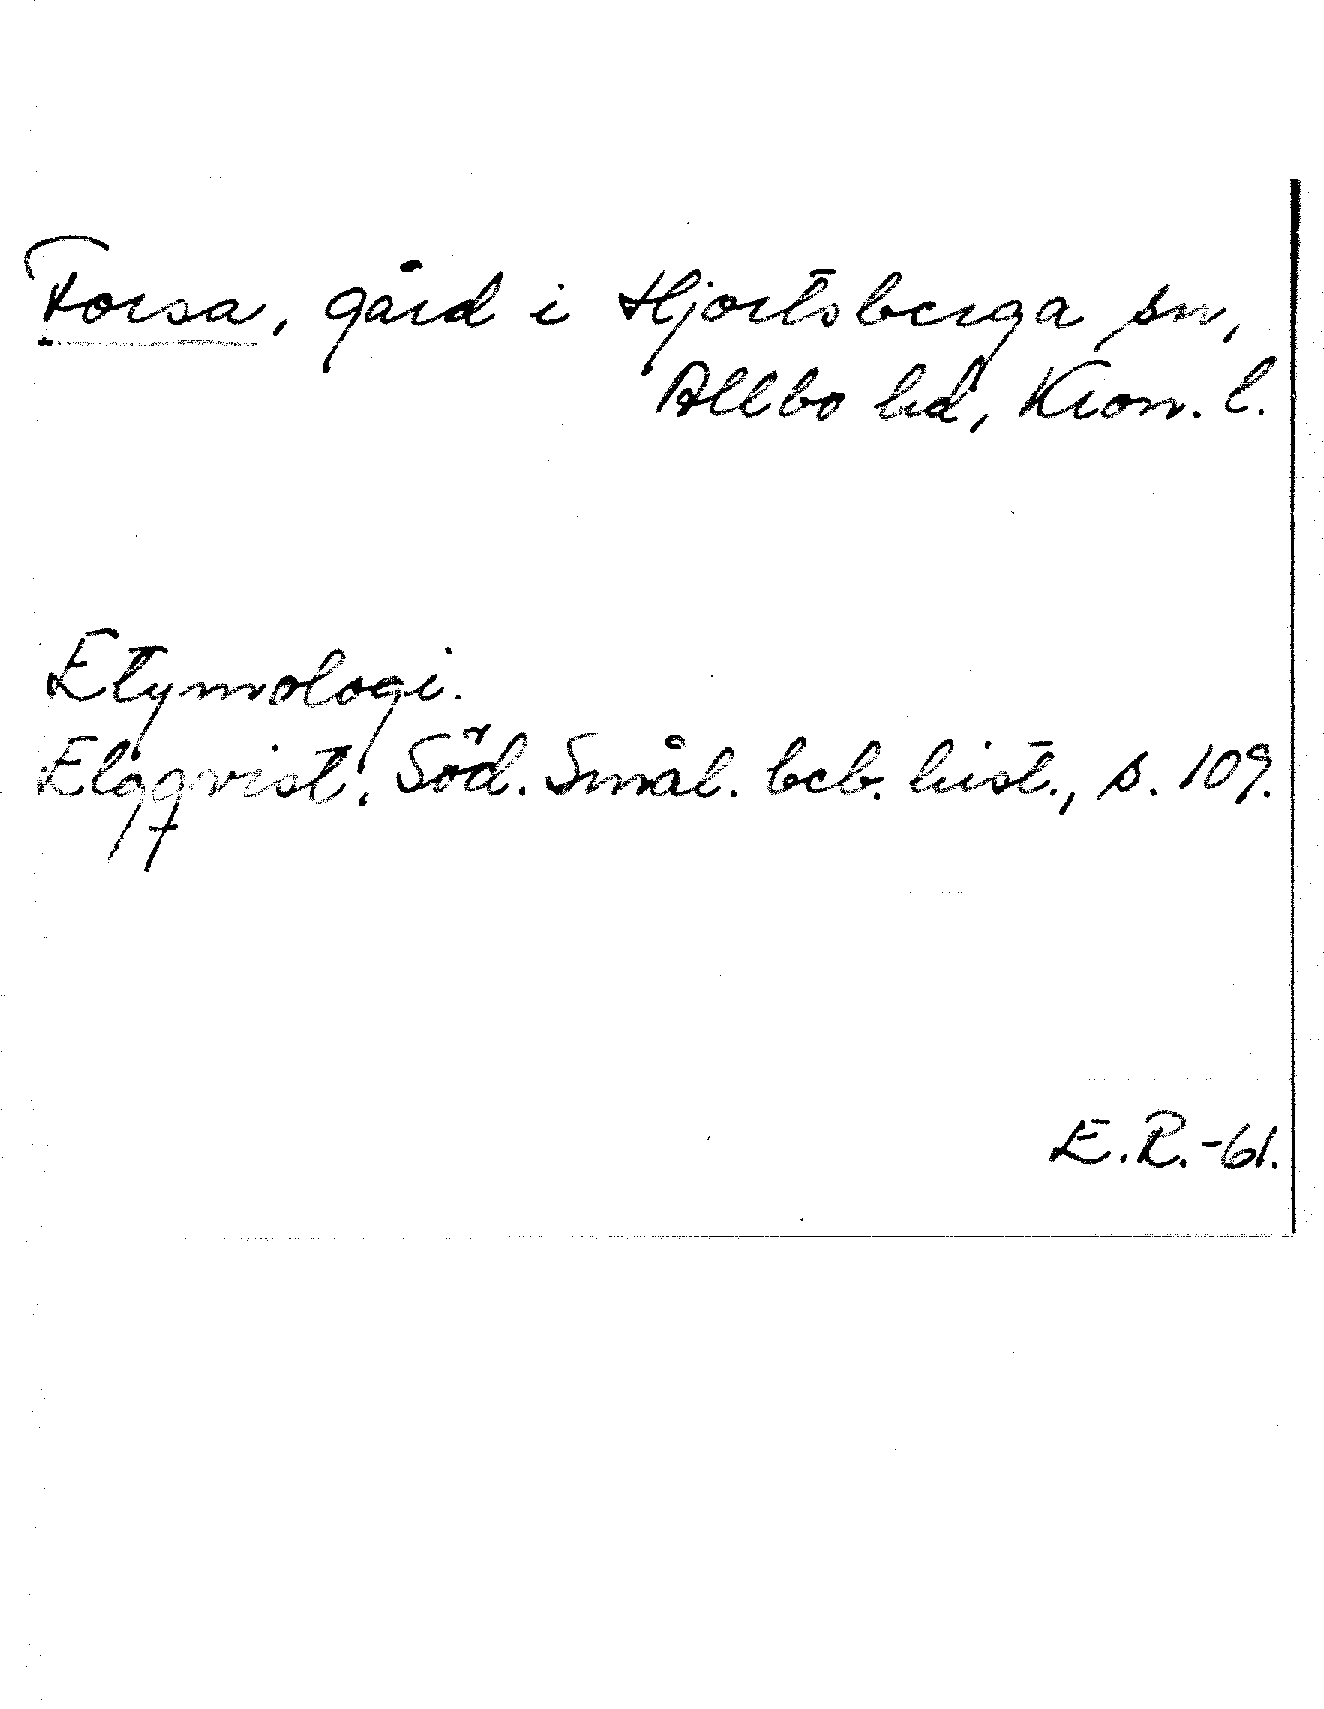 Forsa, gård i Hjortsberga sn,
Allbo hd, Kron. l.
Etymologi.
Elgqvist, Söd. Smål. beb. hist., s. 109.
E.R.-61.